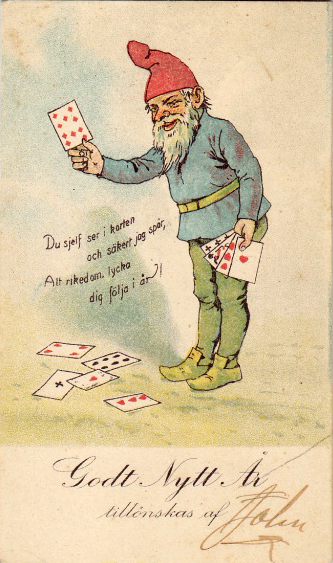 Du sjelf ser i korten
och säkert jag spår,
Alt rikedom, lycka
dig följa i år!
Godt Nytt År
tillönskas af John